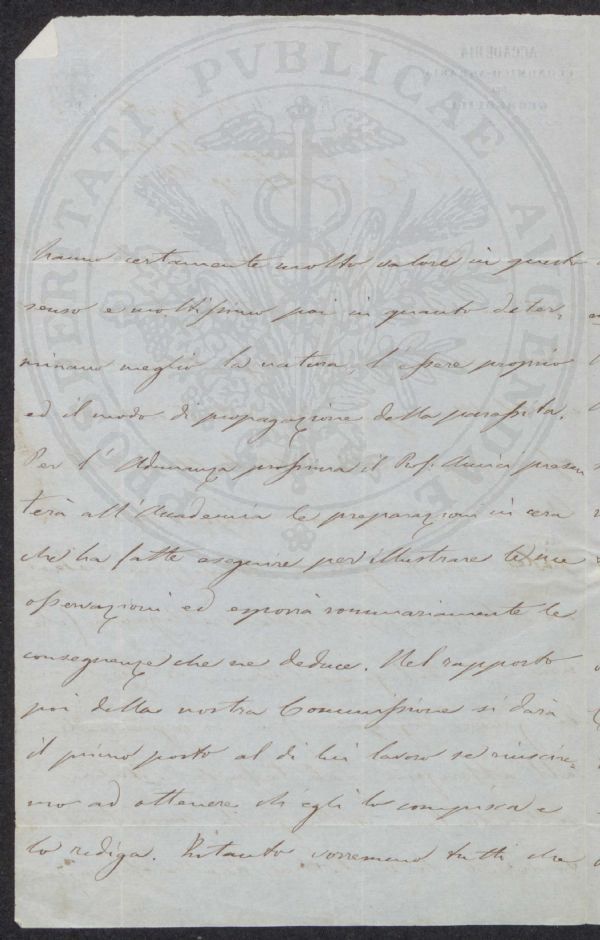 PROSPERITATI PVBLICAE AVGENDAE
hanno certamente molto valore in questo
senso e moltissimo poi in quanto deter-
minano meglio la natura, l'essere proprio
ed il modo di propagazione della parassita.
Per l'Adunanza prossima il Prof. Amici presen
terà all'Accademia le preparazioni in cera
che ha fatte eseguire per illustrare le sue
osservazioni ed esporrà sommariamente le
conseguenze che ne deduce. Nel rapporto
poi della nostra Commissione si darà
il primo posto al di lui lavoro se riuscire-
mo ad ottenere ch'egli lo compisca e
lo rediga. Pertanto vorremmo tutti che